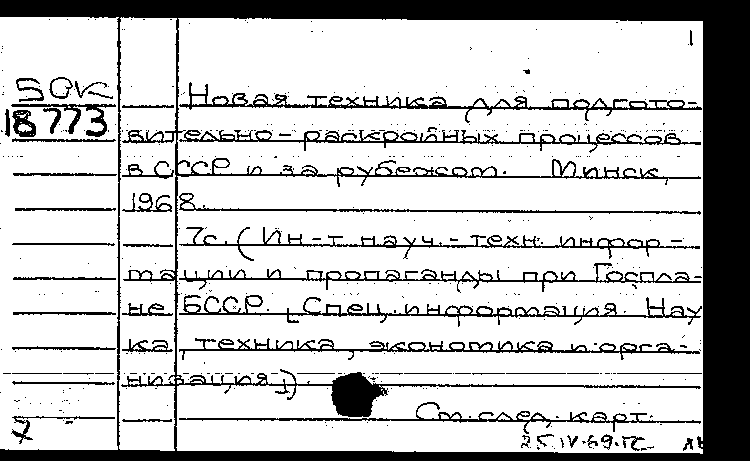 1
Новая техника для подгото-
18773
вительно-раскройных процессов
в СССР и за рубежом. Минск,
1968.
7с. (Ин-т науч.-техн. инфор-
мации и пропаганды при Госпла-
не БССР. [Спец. информация. Нау
ка, техника, экономика и орга-
низация]).
См. след. карт.
25.IV.69.